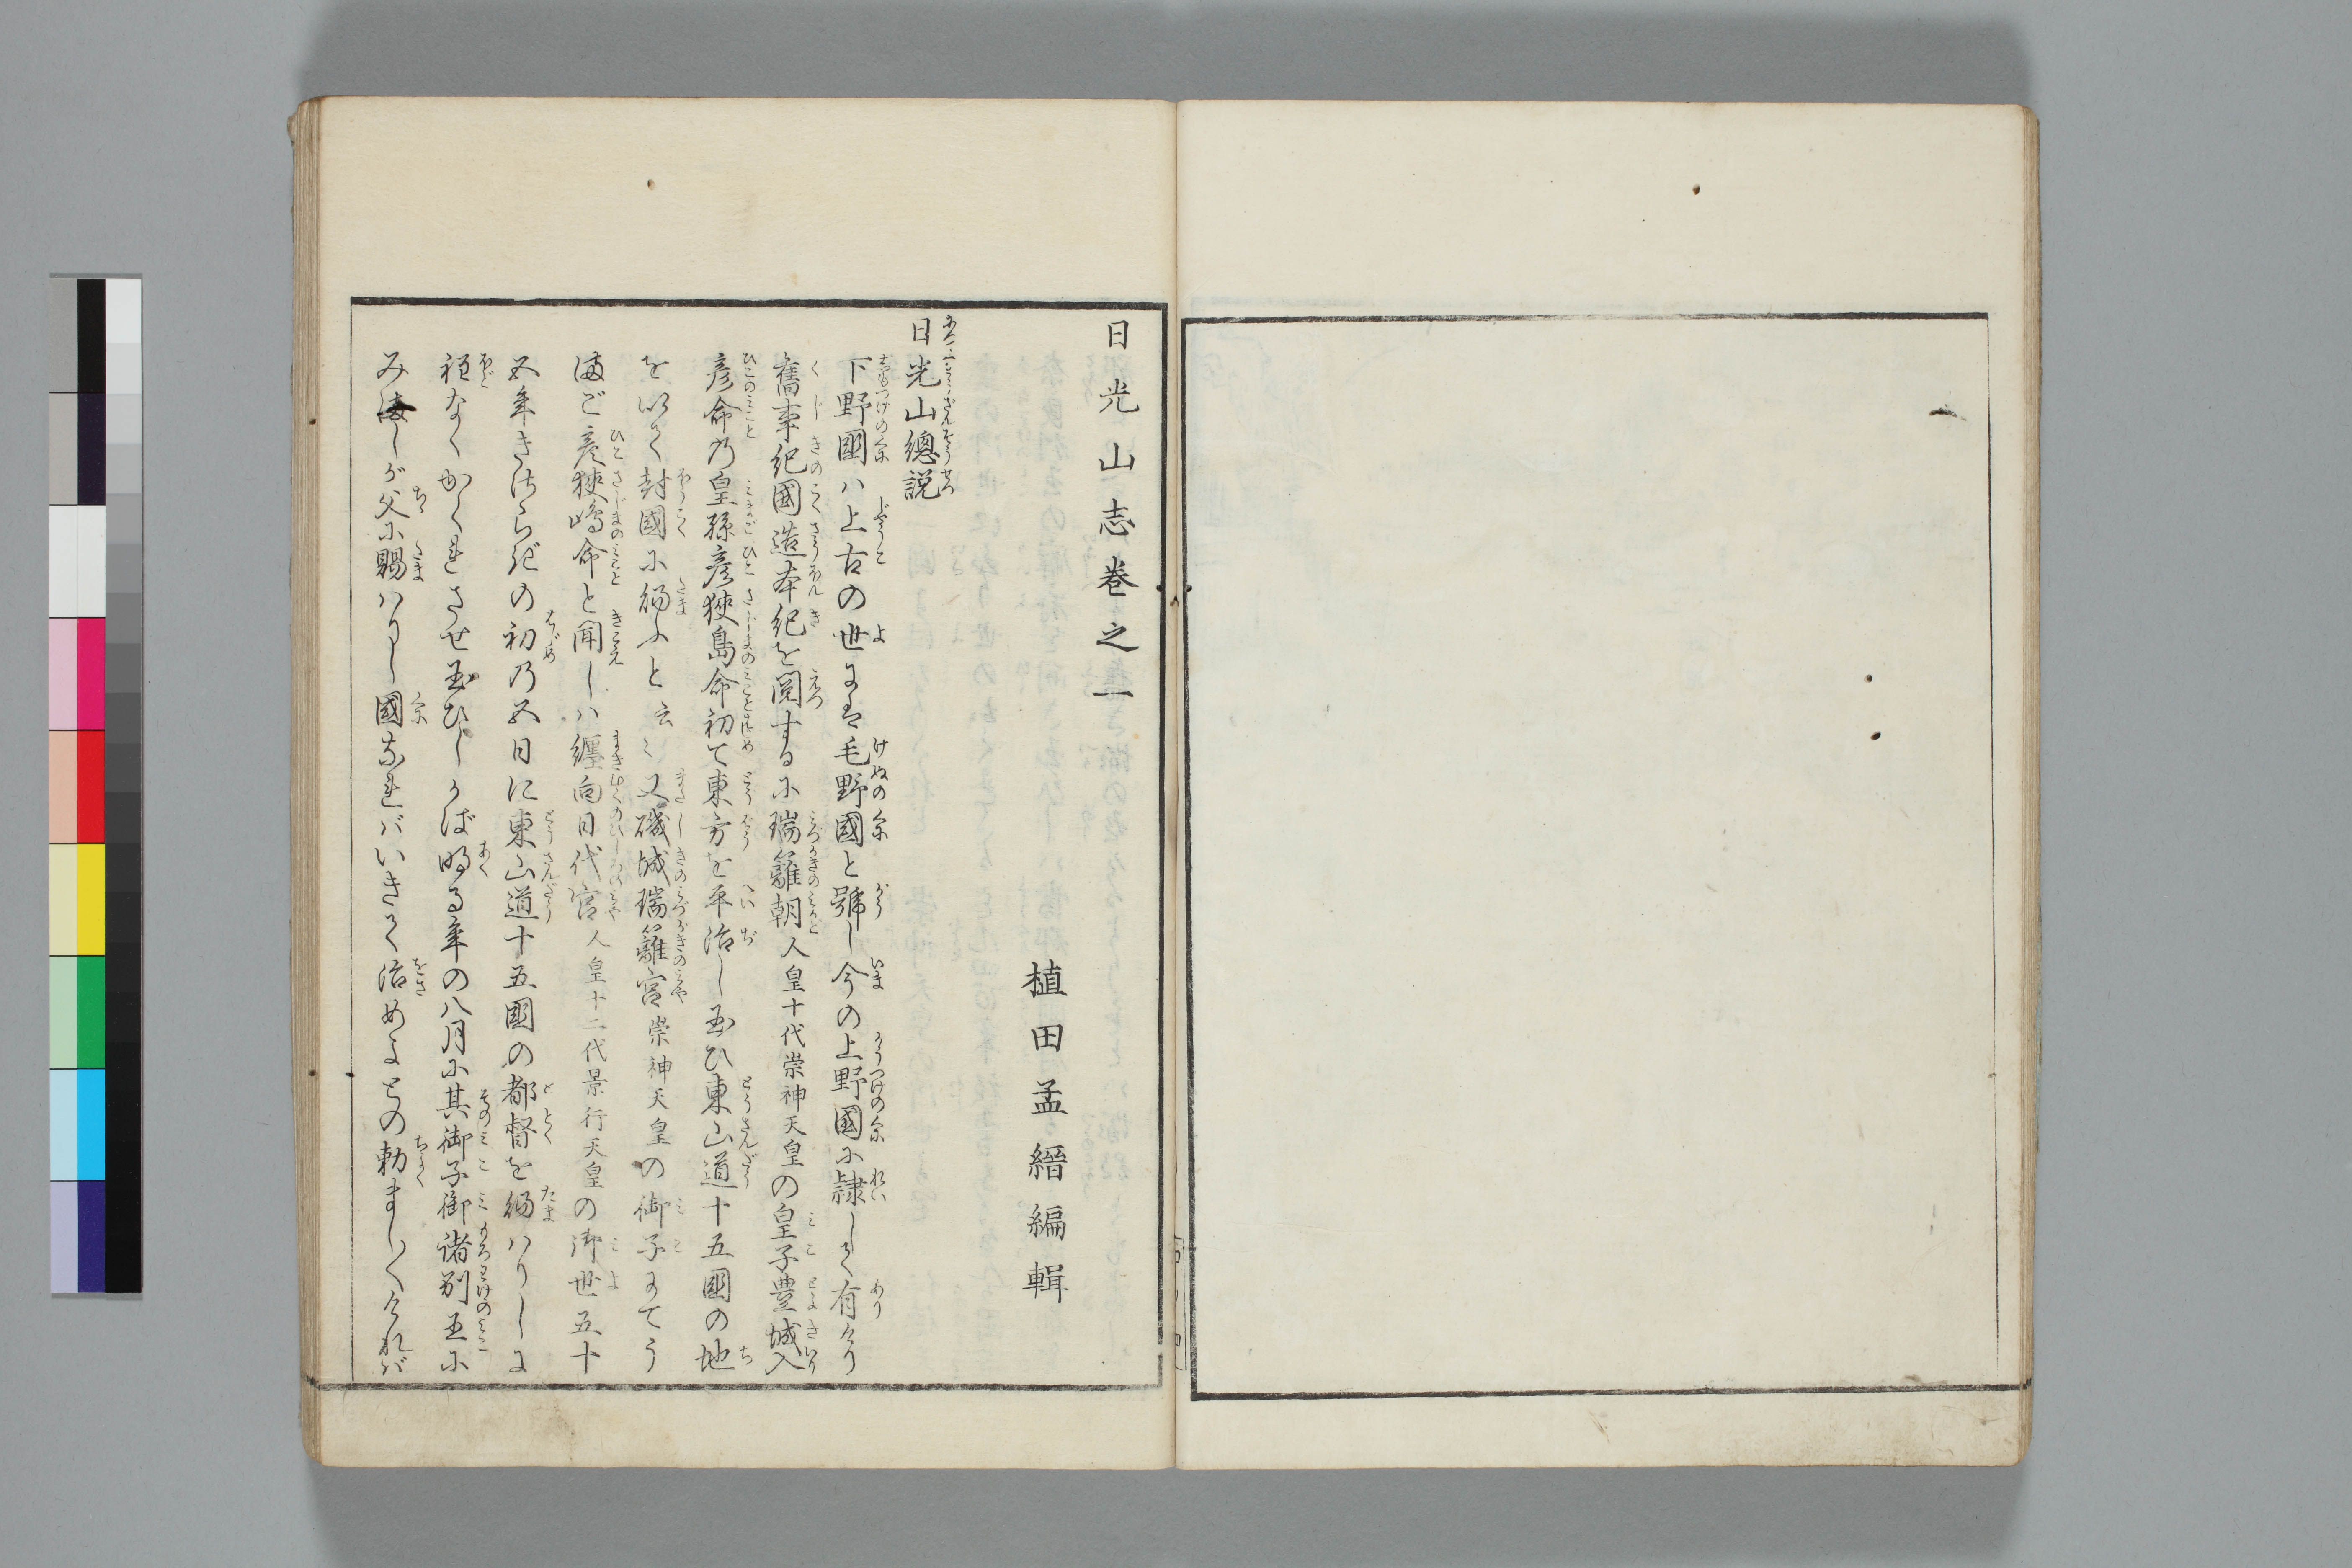 日光山志巻之一
植田孟縉編輯
日光山總説
下野國ハ上古の世には毛野國と號し今の上野國に隷して有けり
舊事紀國造本紀を閲するに瑞籬朝人皇十代崇神天皇の皇子豊城入
彦命乃皇孫彦狹島命初て東方を平治し玉ひ東山道十五國の地
を以て封國に給ふと云々又磯城瑞籬宮崇神天皇の御子にてう
まご彦狹嶋命と聞しハ纏向日代宮人皇十二代景行天皇の御世五十
五年きさらぎの初乃五日に東山道十五國の都督を給ハりしに
程なくかくれさせ玉ひしかば明る年の八月に其御子御諸別王に
みましが父に賜ハりし國なれバいきて治めよとの勅まし〳〵けれバ